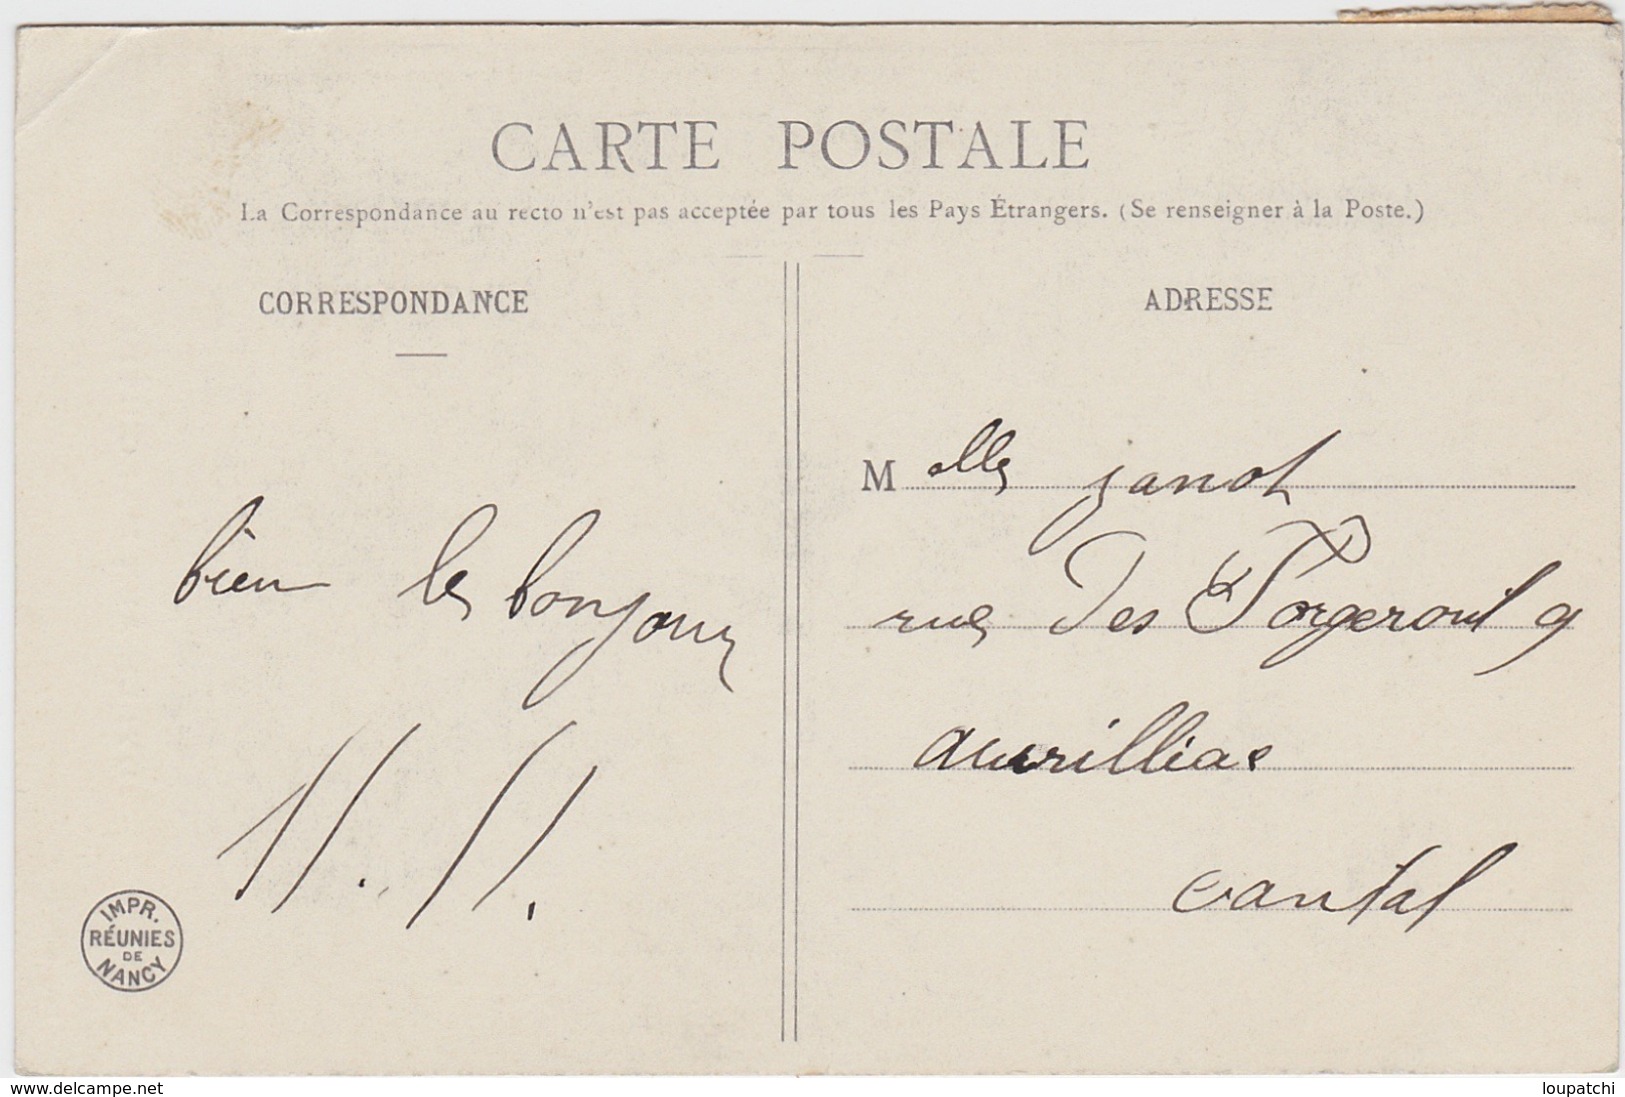 CARTE POSTALE
La Correspondance au recto n'est pas acceptée par tous les Pays Étrangers. (Se renseigner à la Poste.)
CORRESPONDANCE
bien le bonjour
11. 11.
IMPR.
RÉUNIES
DE
NANCY
ADRESSE
Melle janot
rue Des 9
aurilliac
cantal
www.delcampe.net
loupatchi